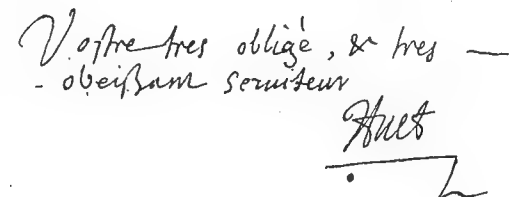 Vostre tres obligé, & tres —
- obeißant seruiteur
Huet